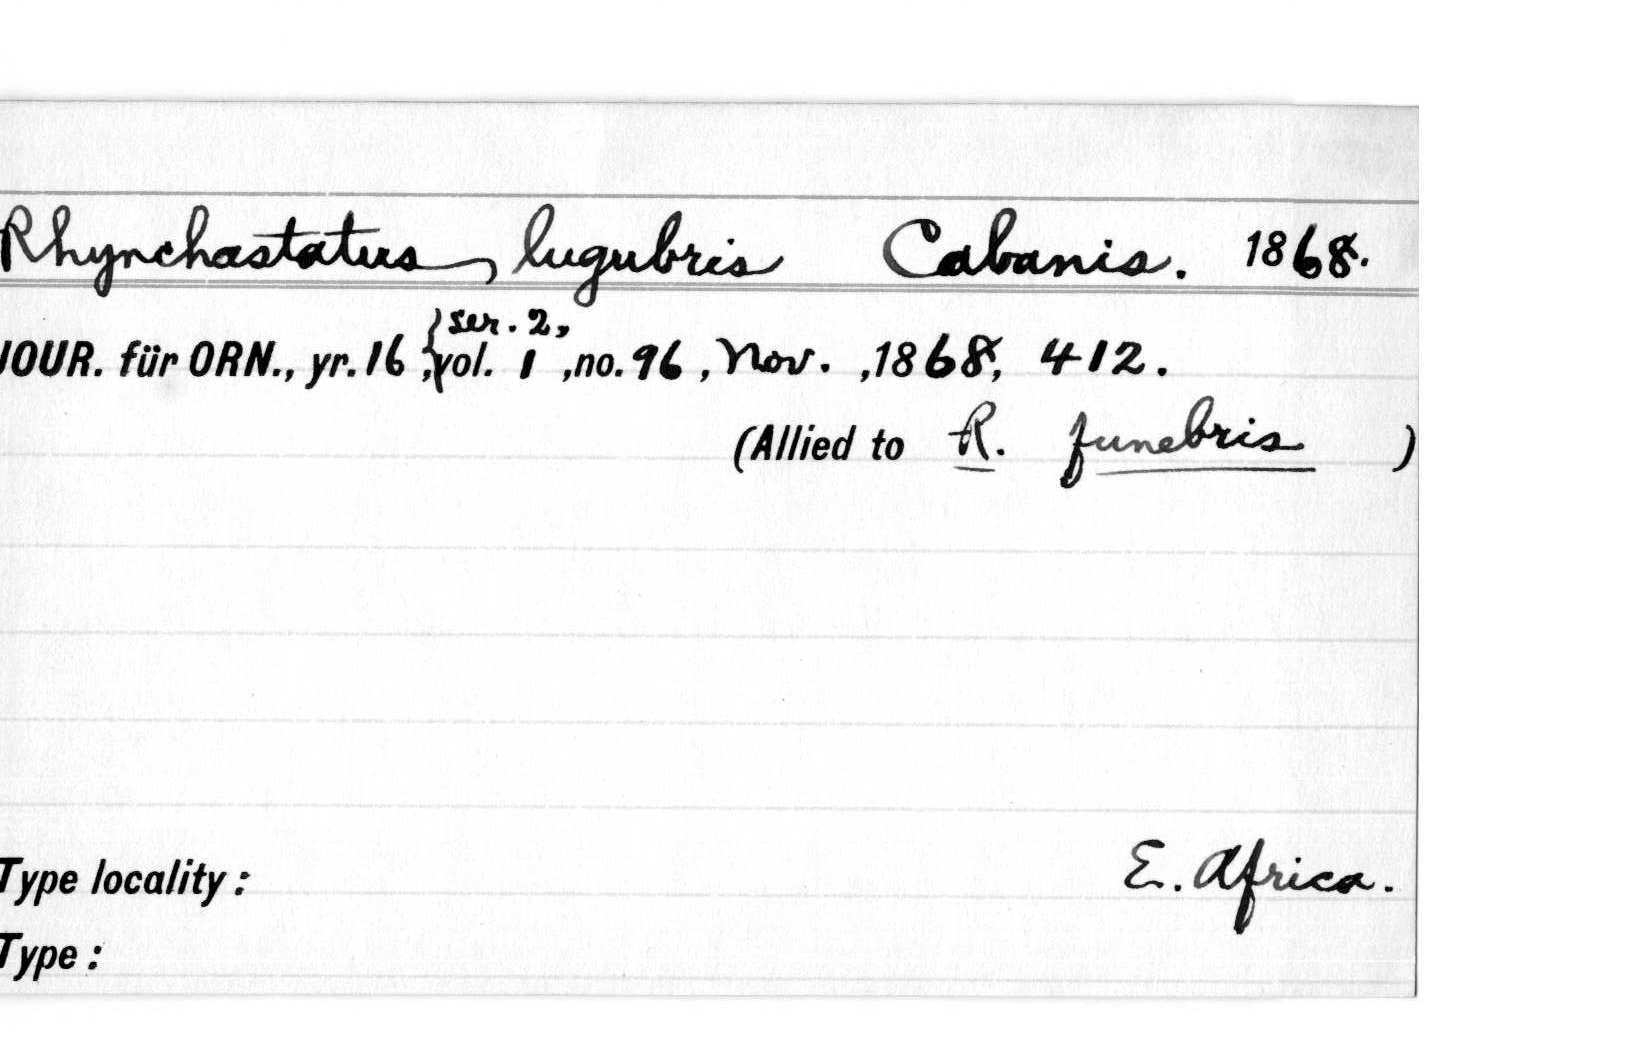 Rhynchastatus, lugubris Cabanis. 1868.
ser. 2,
JOUR. für ORN., yr. 16, {vol. 1, no. 96, Nov., 1868, 412.
(Allied to R. funebris )
Type locality: E. Africa.
Type: